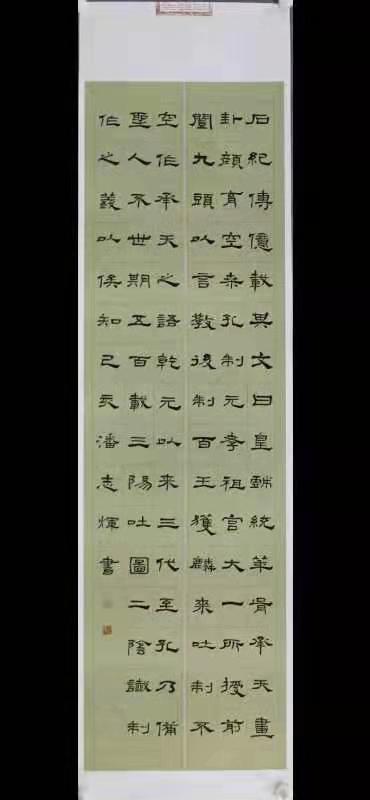 石紀傳億載其文曰皇戲統華胥承天畫
卦顏育空桑孔制元孝祖宮大一所授前
闓九頭以言教後制百王獲麟來吐制不
空作承天之語乾元以來三代至孔乃備
聖人不世期五百載三陽吐圖二陰讖制
作之義以俟知己亥潘志煇書